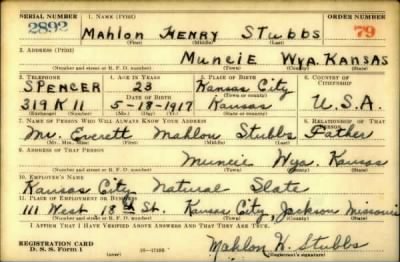 SERIAL NUMBER 1. NAME (Print) ORDER NUMBER
2892 Mahlon Henry Stubbs 79
(First) (Middle) (Last)
2. ADDRESS (Print)
Muncie Wya. Kansas
(Number and street or R. F. D. number) (Town) (County) (State)
3. TELEPHONE 4. AGE IN YEARS 5. PLACE OF BIRTH 6. COUNTRY OF CITIZENSHIP
Spencer 23 Kansas City
DATE OF BIRTH (Town or county)
319 K 11 5-18-1917 Kansas U.S.A.
(Exchange) (Number) (Mo.) (Day) (Yr.) (State or country)
7. NAME OF PERSON WHO WILL ALWAYS KNOW YOUR ADDRESS 8. RELATIONSHIP OF THAT PERSON
Mr. Everett Mahlon Stubbs Father
(Mr., Mrs., Miss) (First) (Middle) (Last)
9. ADDRESS OF THAT PERSON
Muncie Wya. Kansas
(Number and street or R. F. D. number) (Town) (County) (State)
10. EMPLOYER'S NAME
Kansas City Natural Slate
11. PLACE OF EMPLOYMENT OR BUSINESS
111 West 18th St. Kansas City, Jackson Missouri
(Number and street or R. F. D. number) (Town) (County) (State)
I AFFIRM THAT I HAVE VERIFIED ABOVE ANSWERS AND THAT THEY ARE TRUE.
REGISTRATION CARD
D. S. S. Form 1 Mahlon H. Stubbs
(Registrant's signature)